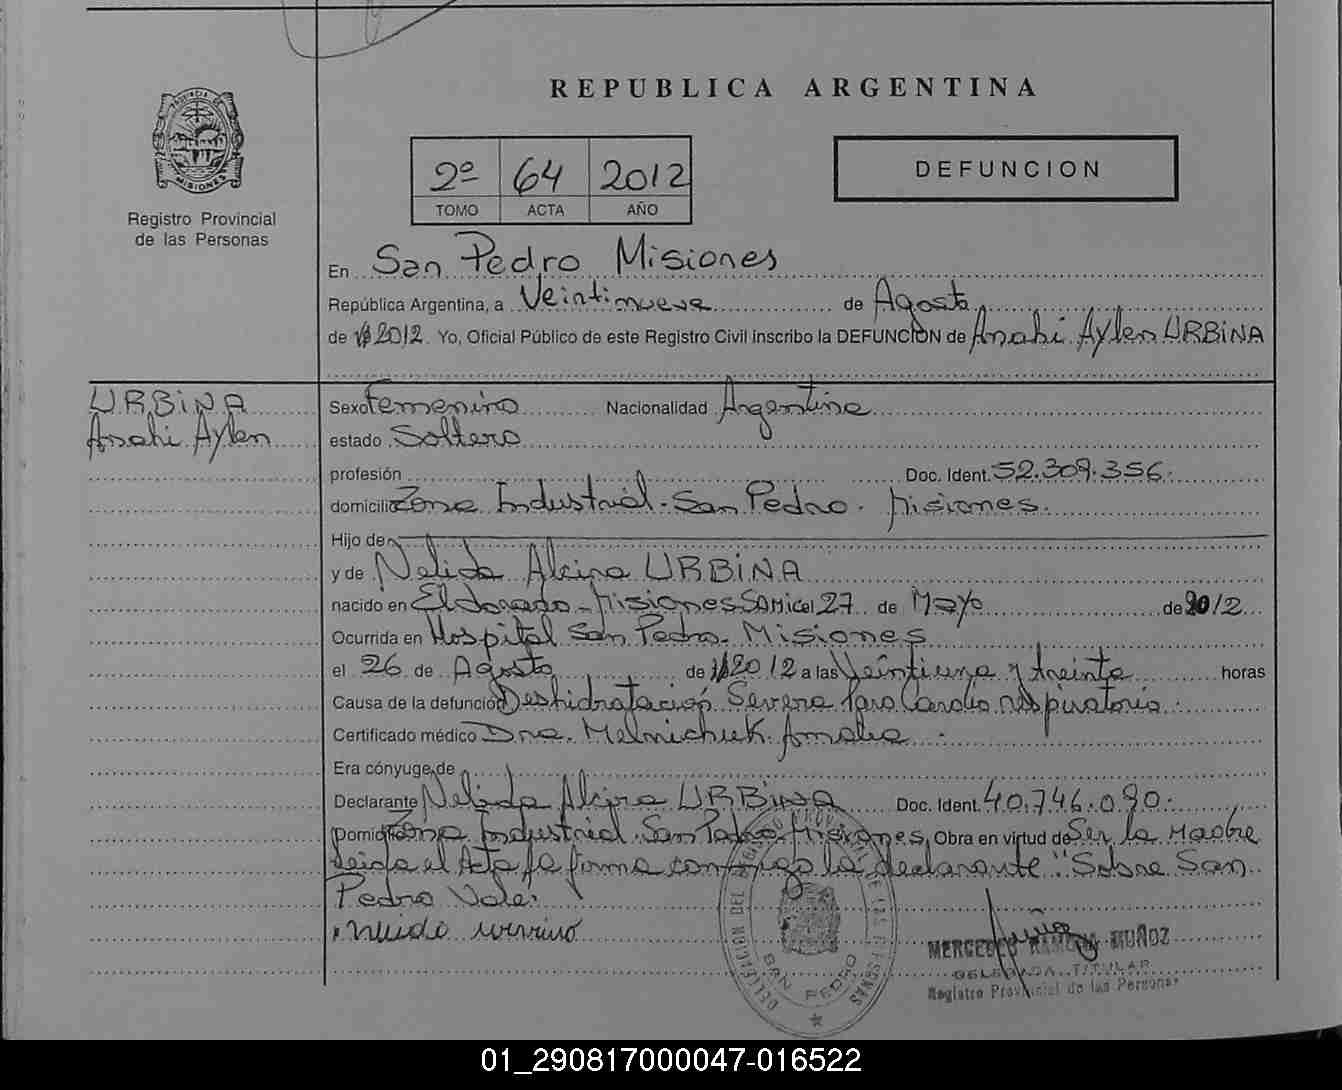 REPUBLICA ARGENTINA
PROVINCIA DE MISIONES
Registro Provincial
de las Personas
2º 64 2012
TOMO ACTA AÑO
DEFUNCION
En San Pedro Misiones
República Argentina, a Veintinueve de Agosto
de 2012. Yo, Oficial Público de este Registro Civil inscribo la DEFUNCION de Anahi Aylen URBiNA
URBiNA
Anahi Aylen
Sexo Femenino Nacionalidad Argentina
estado Soltero
profesión Doc. Ident. 52.309.356.
domicilio Zona Industrial - San Pedro - Misiones.
Hijo de
y de Nelida Alcira URBiNA
nacido en Eldorado - Misiones SAMic el 27 de Mayo de 2012
Ocurrida en Hospital San Pedro - Misiones
el 26 de Agosto de 2012 a las Veintiuna y treinta horas
Causa de la defunción Deshidratación Severa Paro Cardio respiratorio.
Certificado médico Dra. Melnichuk Amalia.
Era cónyuge de
Declarante Nelida Alcira URBiNA Doc. Ident. 40.746.090.
Domicilio Zona Industrial San Pedro Misiones, Obra en virtud de Ser la Madre
leida el Acta la firma conmigo la declarante "Sobre San
Pedro Vale.
DELEGACION DEL REGISTRO PROVINCIAL DE LAS PERSONAS
SAN PEDRO
MERCEDES RAMONA MUÑOZ
DELEGADA TITULAR
Registro Provincial de las Personas
01_290817000047-016522